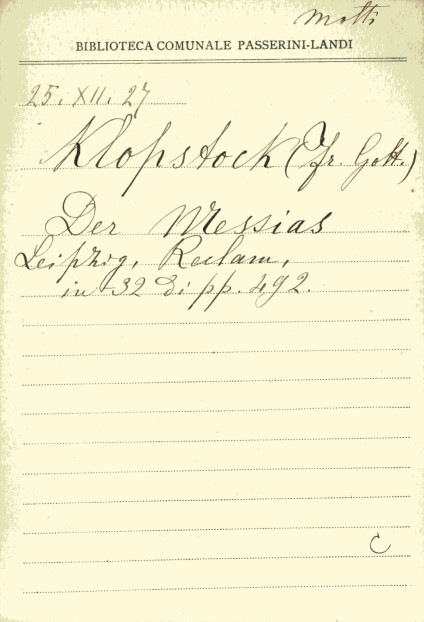 Motti
BIBLIOTECA COMUNALE PASSERINI-LANDI
25. XII. 27
Klopstock (Fr. Gott.)
Der Messias
Leipzig, Reclam,
in 32 di pp. 492.
C